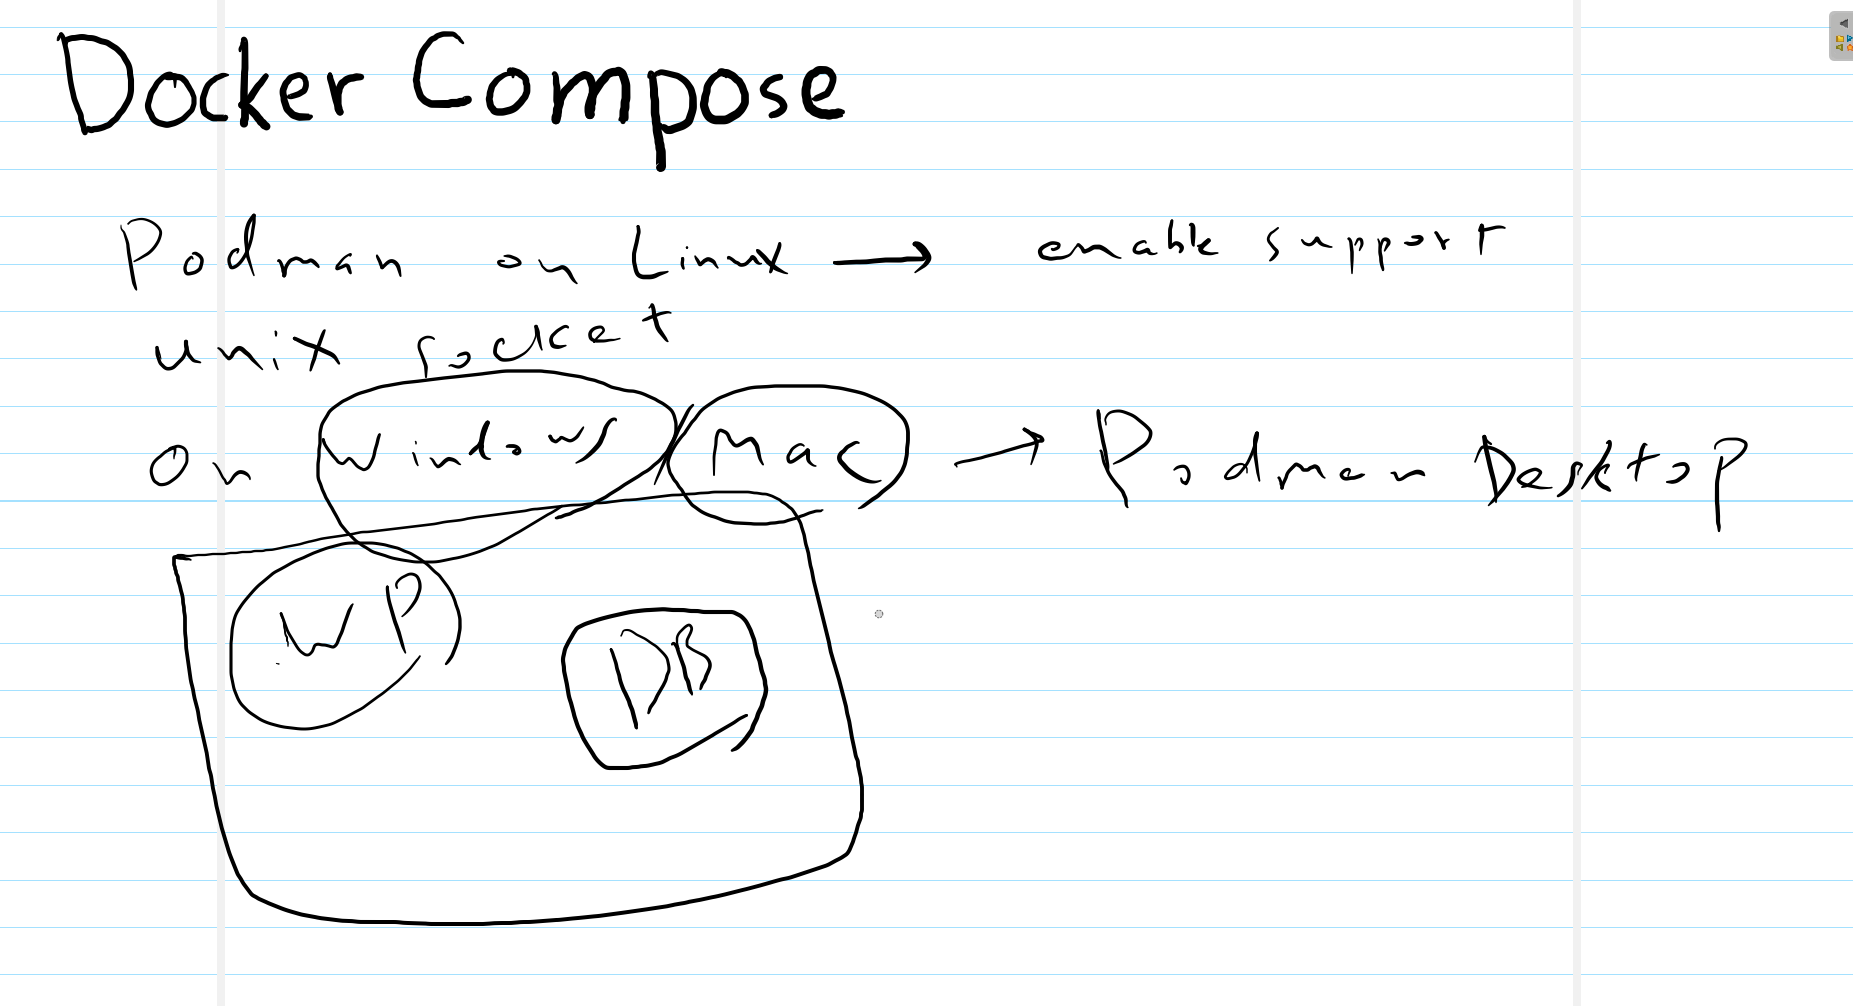 Docker Compose
Podman on Linux → enable support
unix socket
on Windows/Mac → Podman Desktop
WP
DB